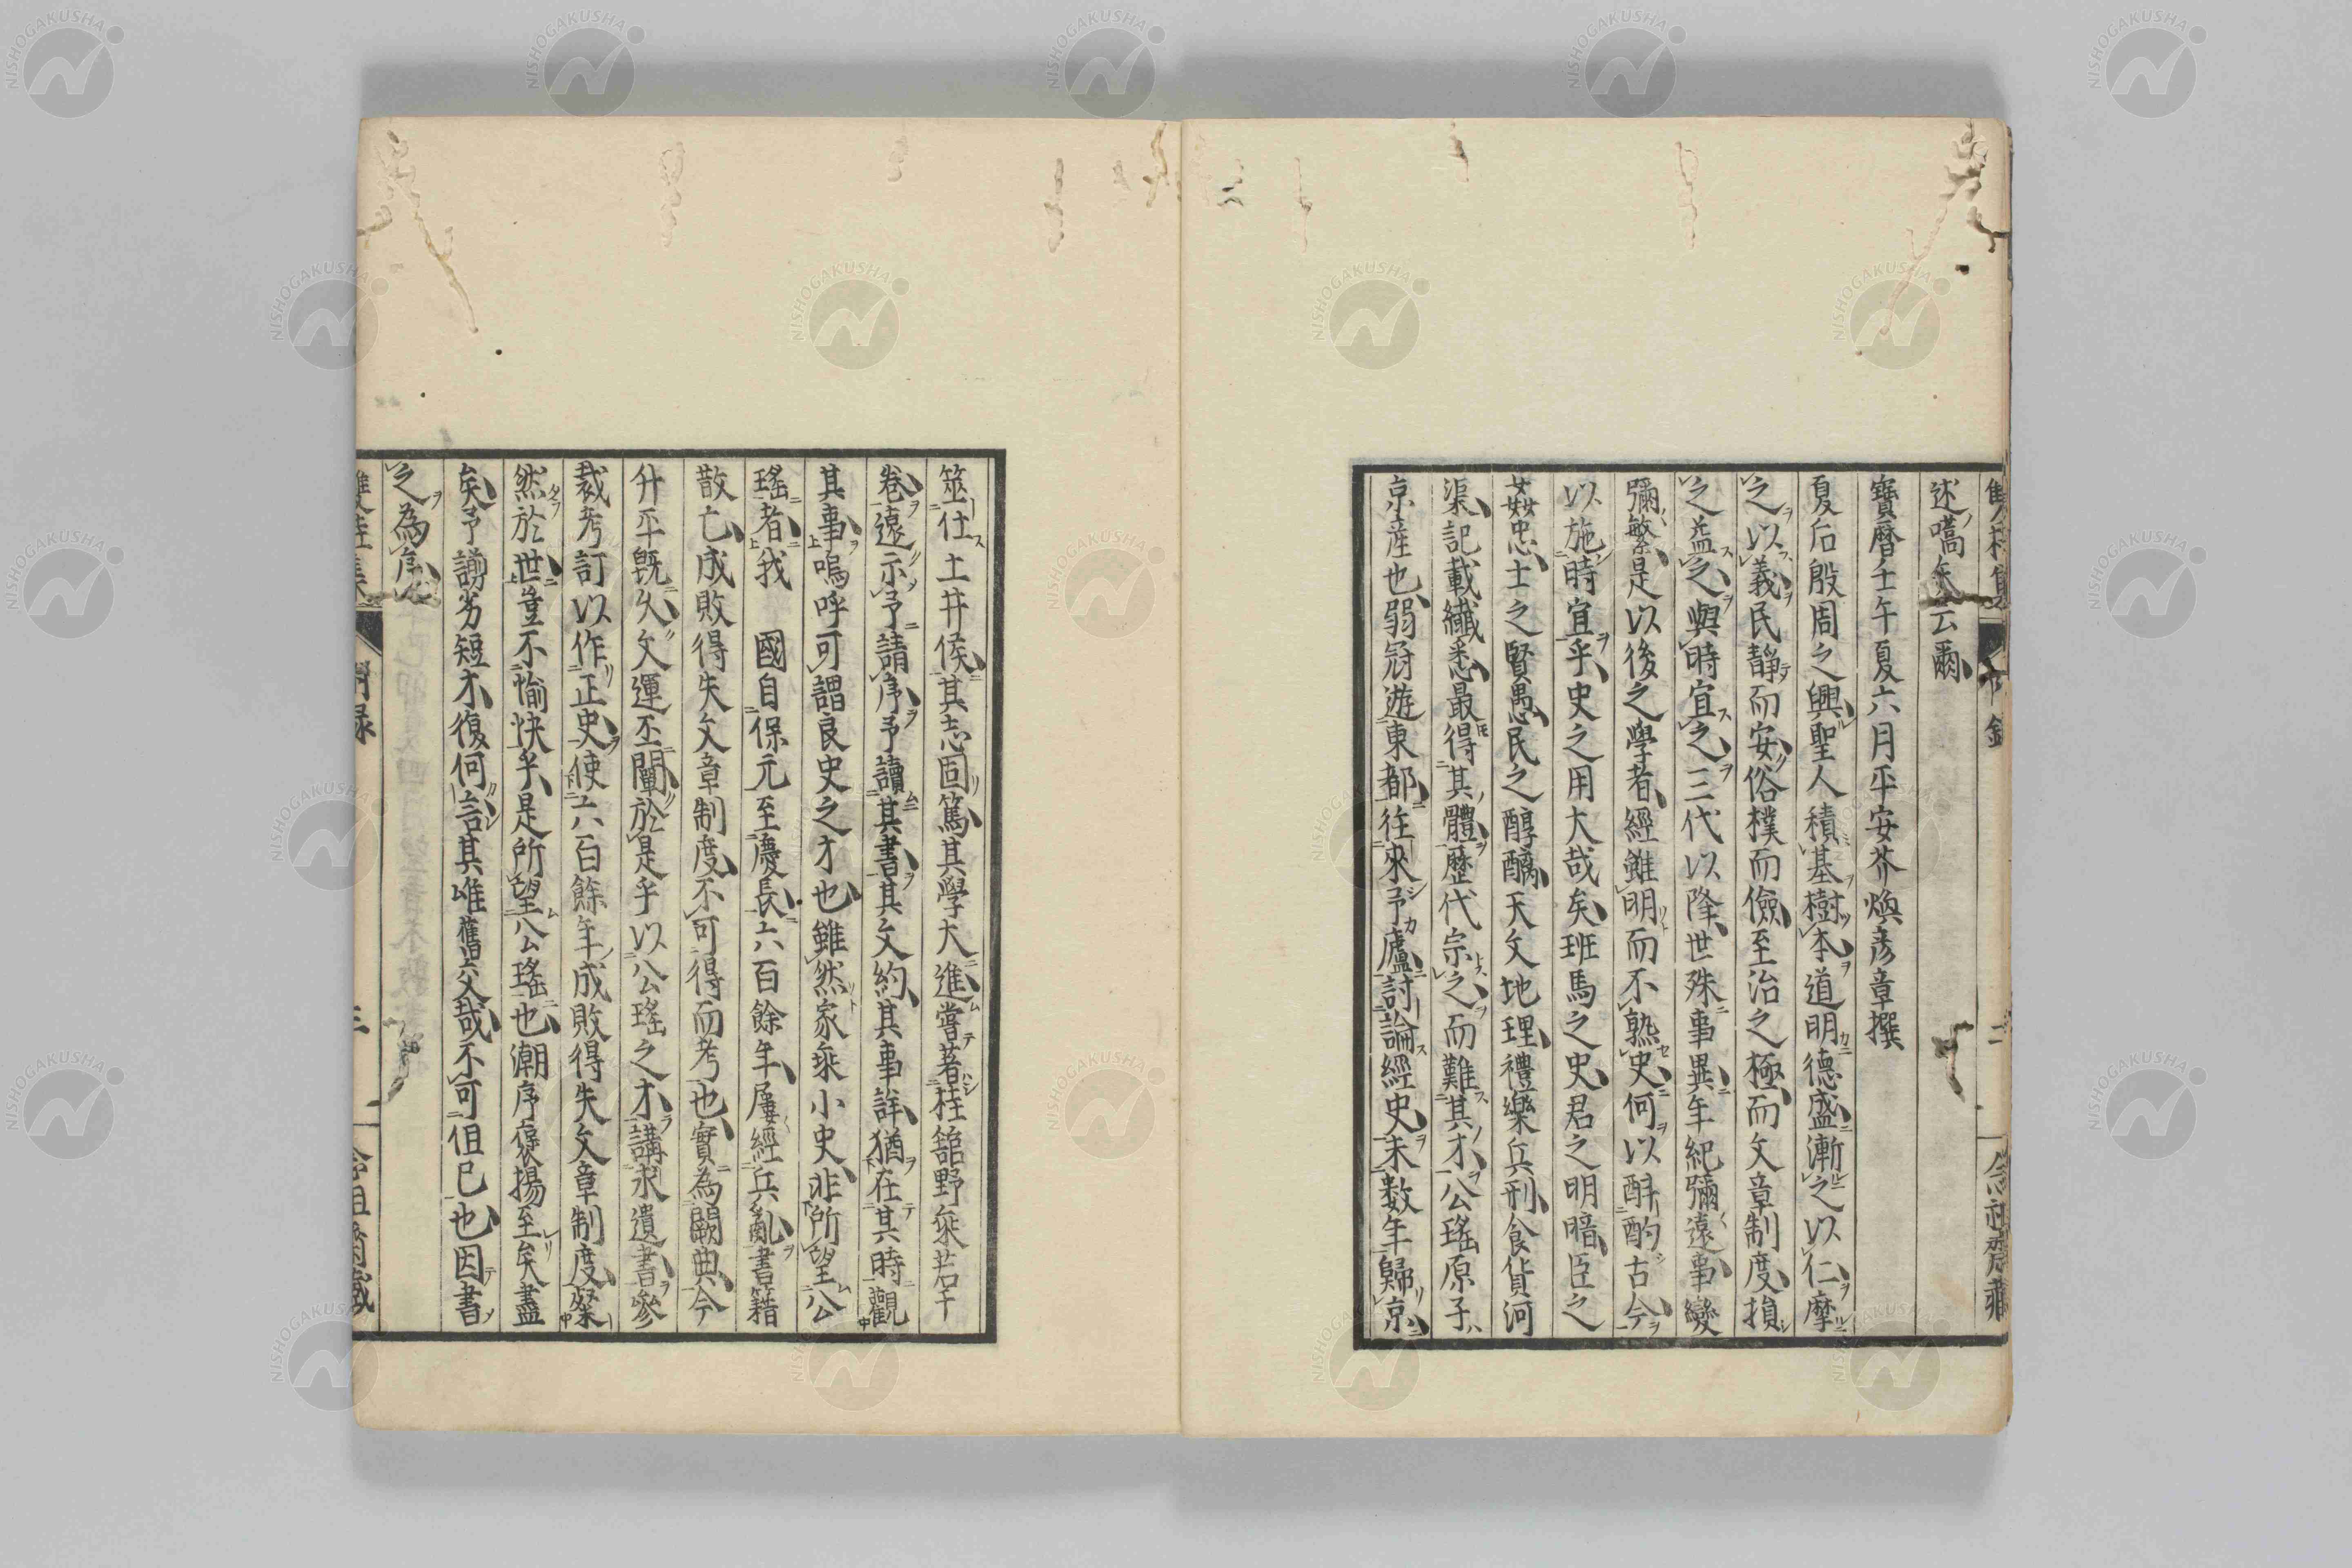 述嚆矢云爾
寶曆壬午夏六月平安芥煥彥章撰
夏后殷周之興聖人積基樹本道明德盛漸之以仁摩
之以義民靜而安俗樸而儉至治之極而文章制度損
之益之與時宜之三代以降世殊事異年紀彌遠事變
彌繁是以後之學者經雖明而不熟史何以斟酌古今
以施時宜乎史之用大哉矣班馬之史君之明暗臣之
姦忠士之賢愚民之醇醨天文地理禮樂兵刑食貨河
渠記載纖悉最得其體歷代宗之而難其才公瑤原子
京産也弱冠遊東都往來予廬討論經史未數年歸京
筮仕土井侯其志固篤其學大進嘗著桂館野乘若干
卷遠示予請序予讀其書其文約其事詳猶在其時觀
其事嗚呼可謂良史之才也雖然家乘小史非所望公
瑤者我 國自保元至慶長六百餘年屢經兵亂書籍
散亡成敗得失文章制度不可得而考也實為闕典今
升平既久文運丕闡於是乎以公瑤之才講求遺書參
裁考訂以作正史使六百餘年成敗得失文章制度粲
然於世豈不愉快乎是所望公瑤也潮序褒揚至矣盡
矣予謭劣短才復何言其唯舊交哉不可但已也因書
之為序
NISHOGAKUSHA